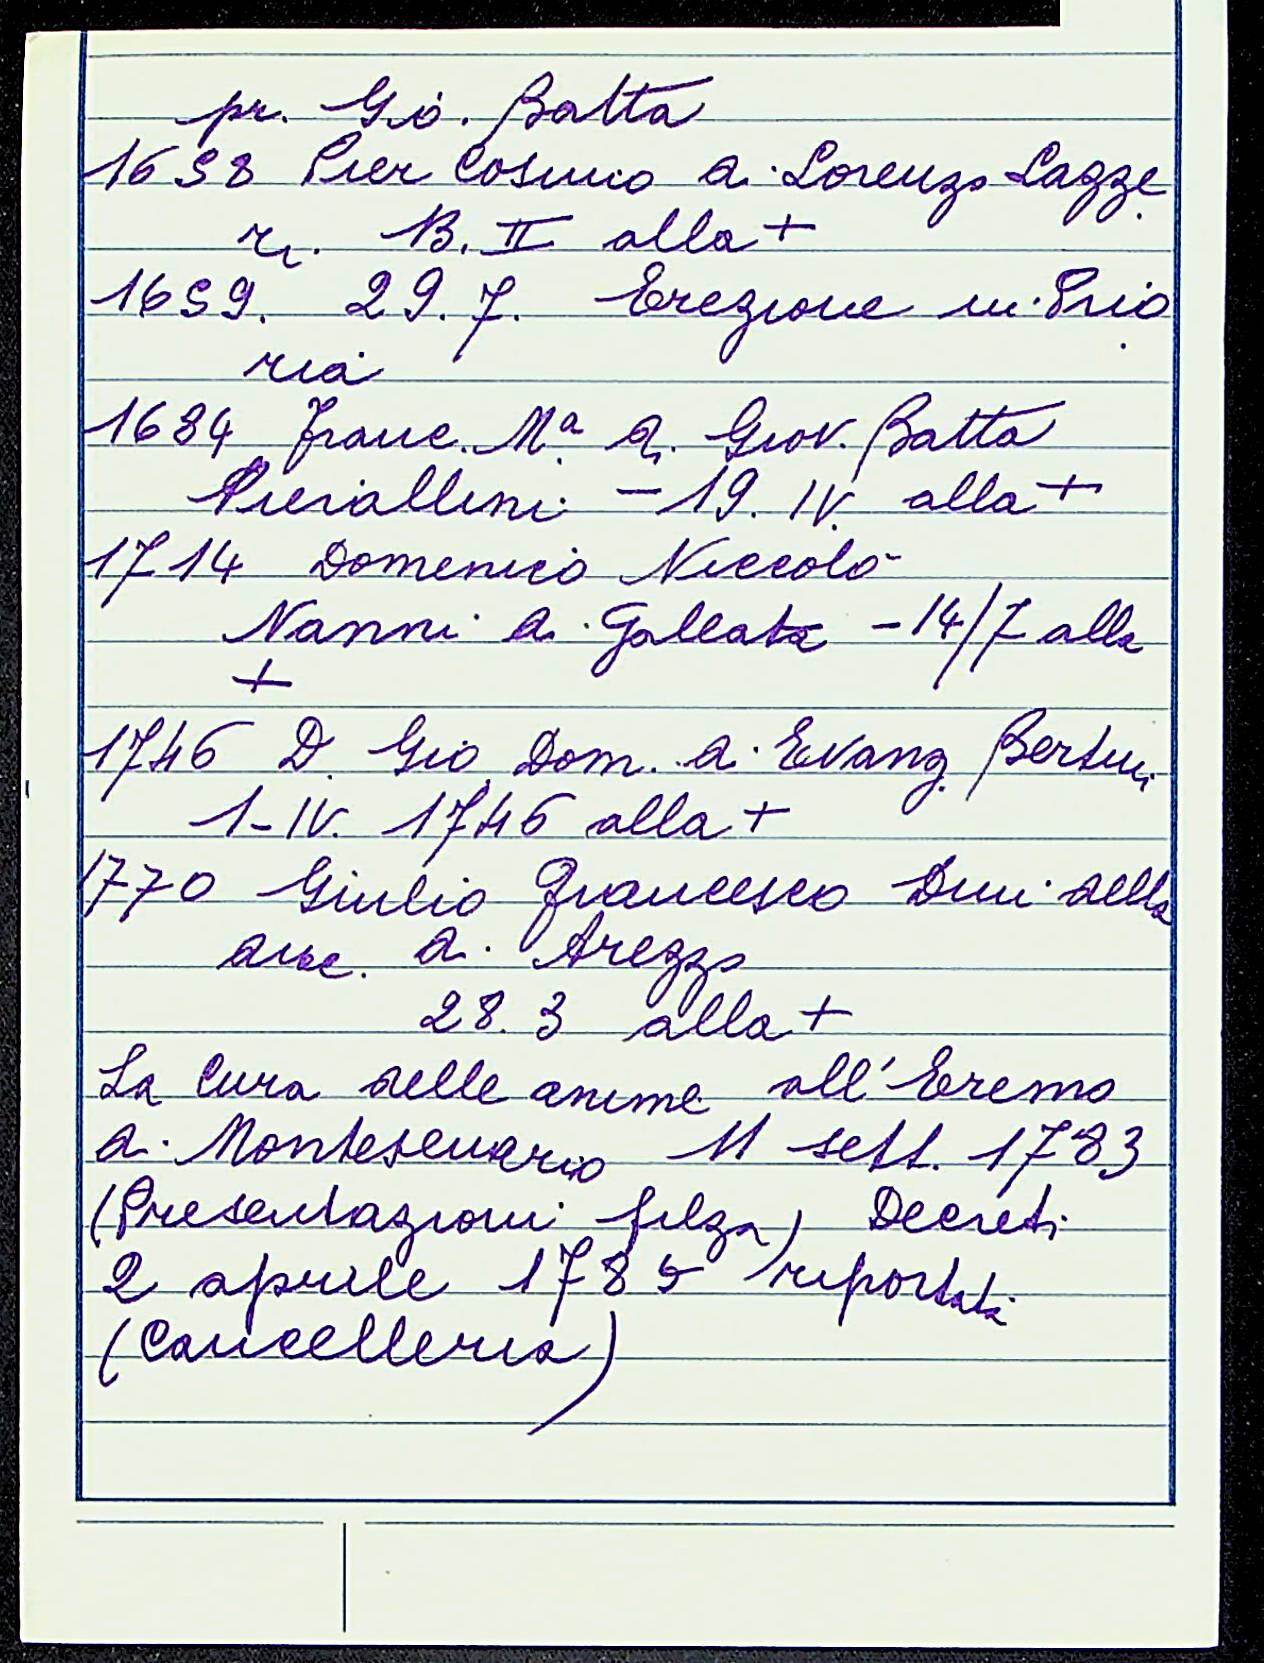 pr. Gio. Batta
1658 Pier Cosimo d. Lorenzo Lazze
ri. B. II alla +
1659. 29. 7. Erezione in Prio
ria
1684 Franc. Mª d. Giov. Batta
Pierallini - 19. IV. alla +
1714 Domenico Niccolò
Nanni d. Galeata - 14/7 alla
+
1746 D. Gio Dom. d. Evang. Bertini
1-IV. 1746 alla +
1770 Giulio Francesco Dini della
dioc. d. Arezzo
28. 3 alla +
La Cura delle anime all'Eremo
d. Montesenario 11 sett. 1783
(Presentazioni filza) Decreti
2 aprile 1785 riportati
(Cancelleria)